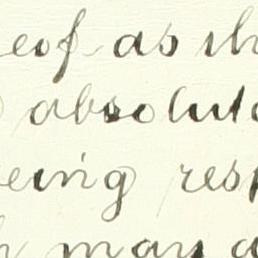 eof as th
absolut
eing res
may a